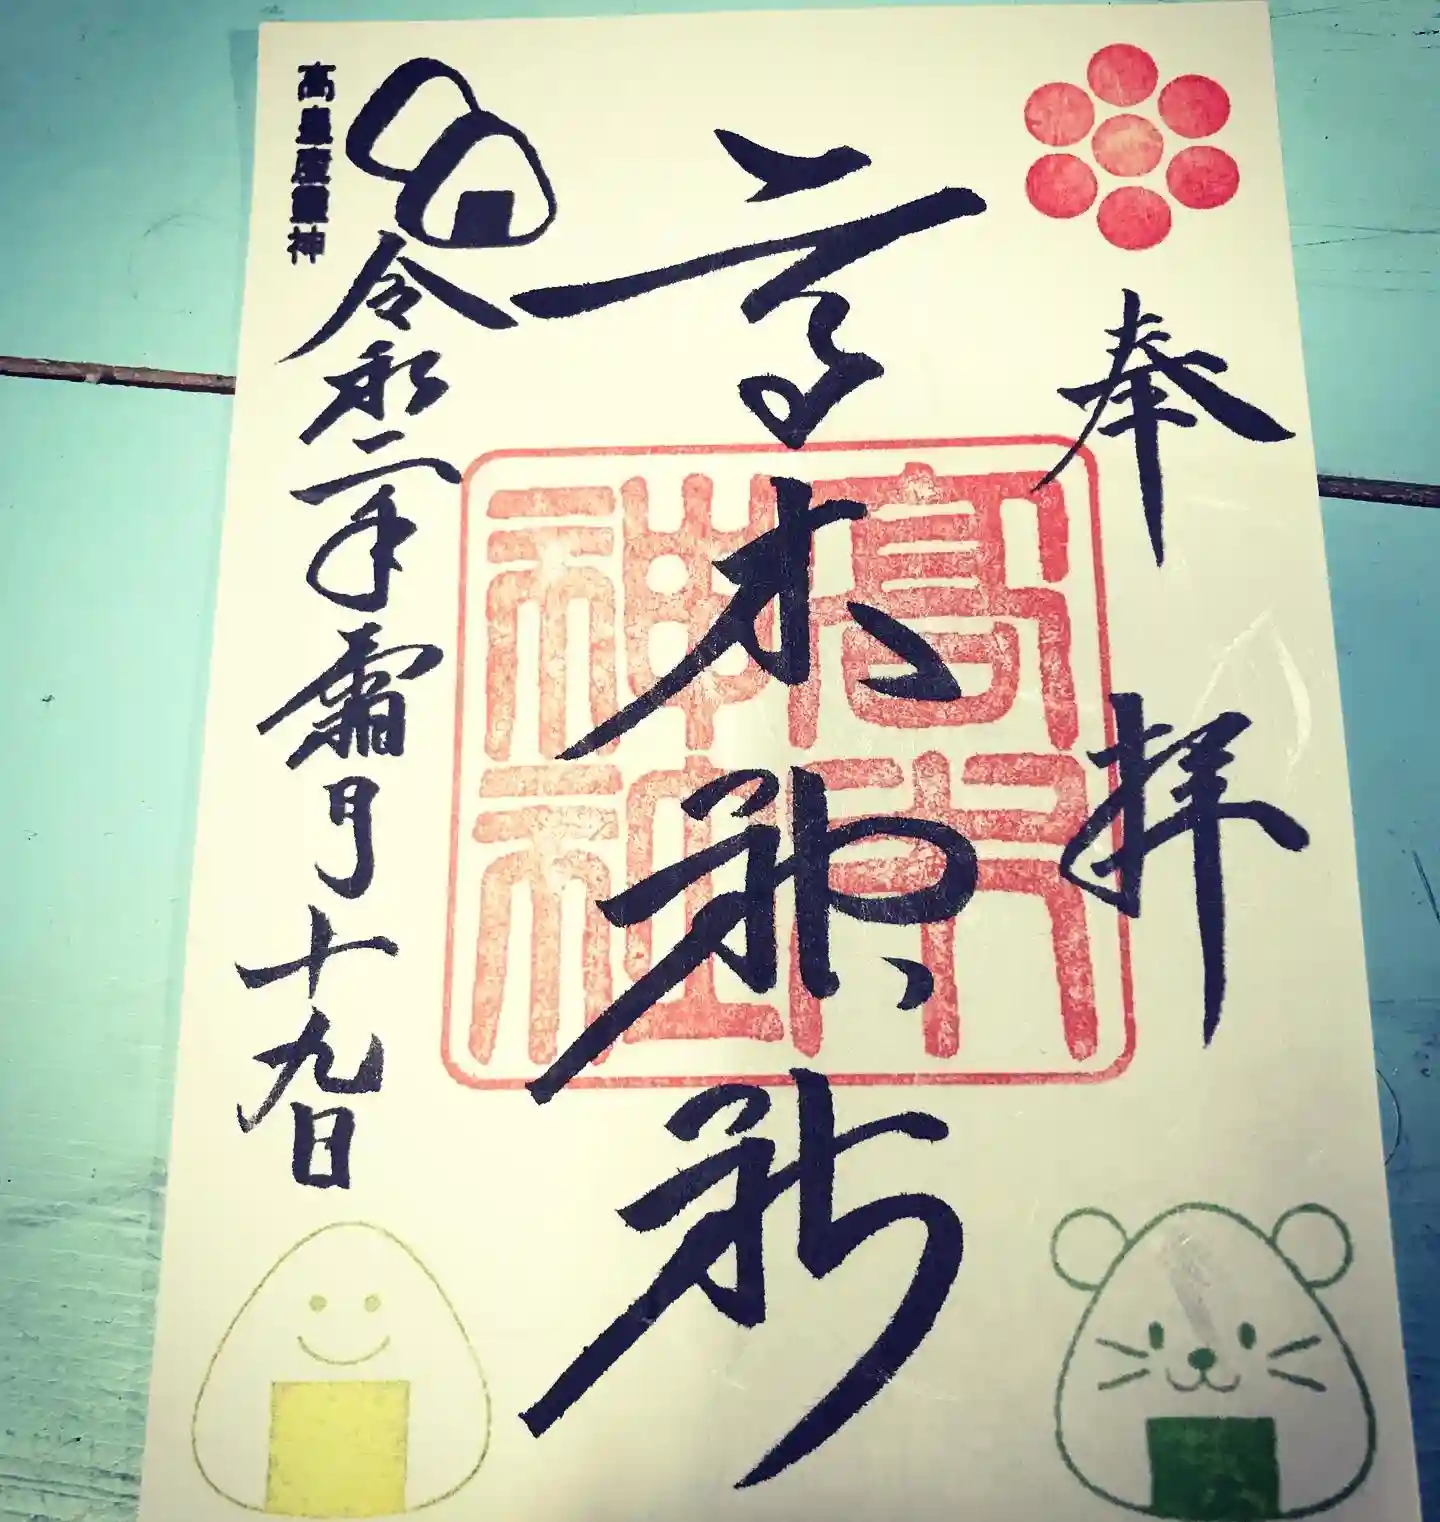 奉拝
高木神社
髙木
神社
令和二年霜月十九日
高皇産霊神